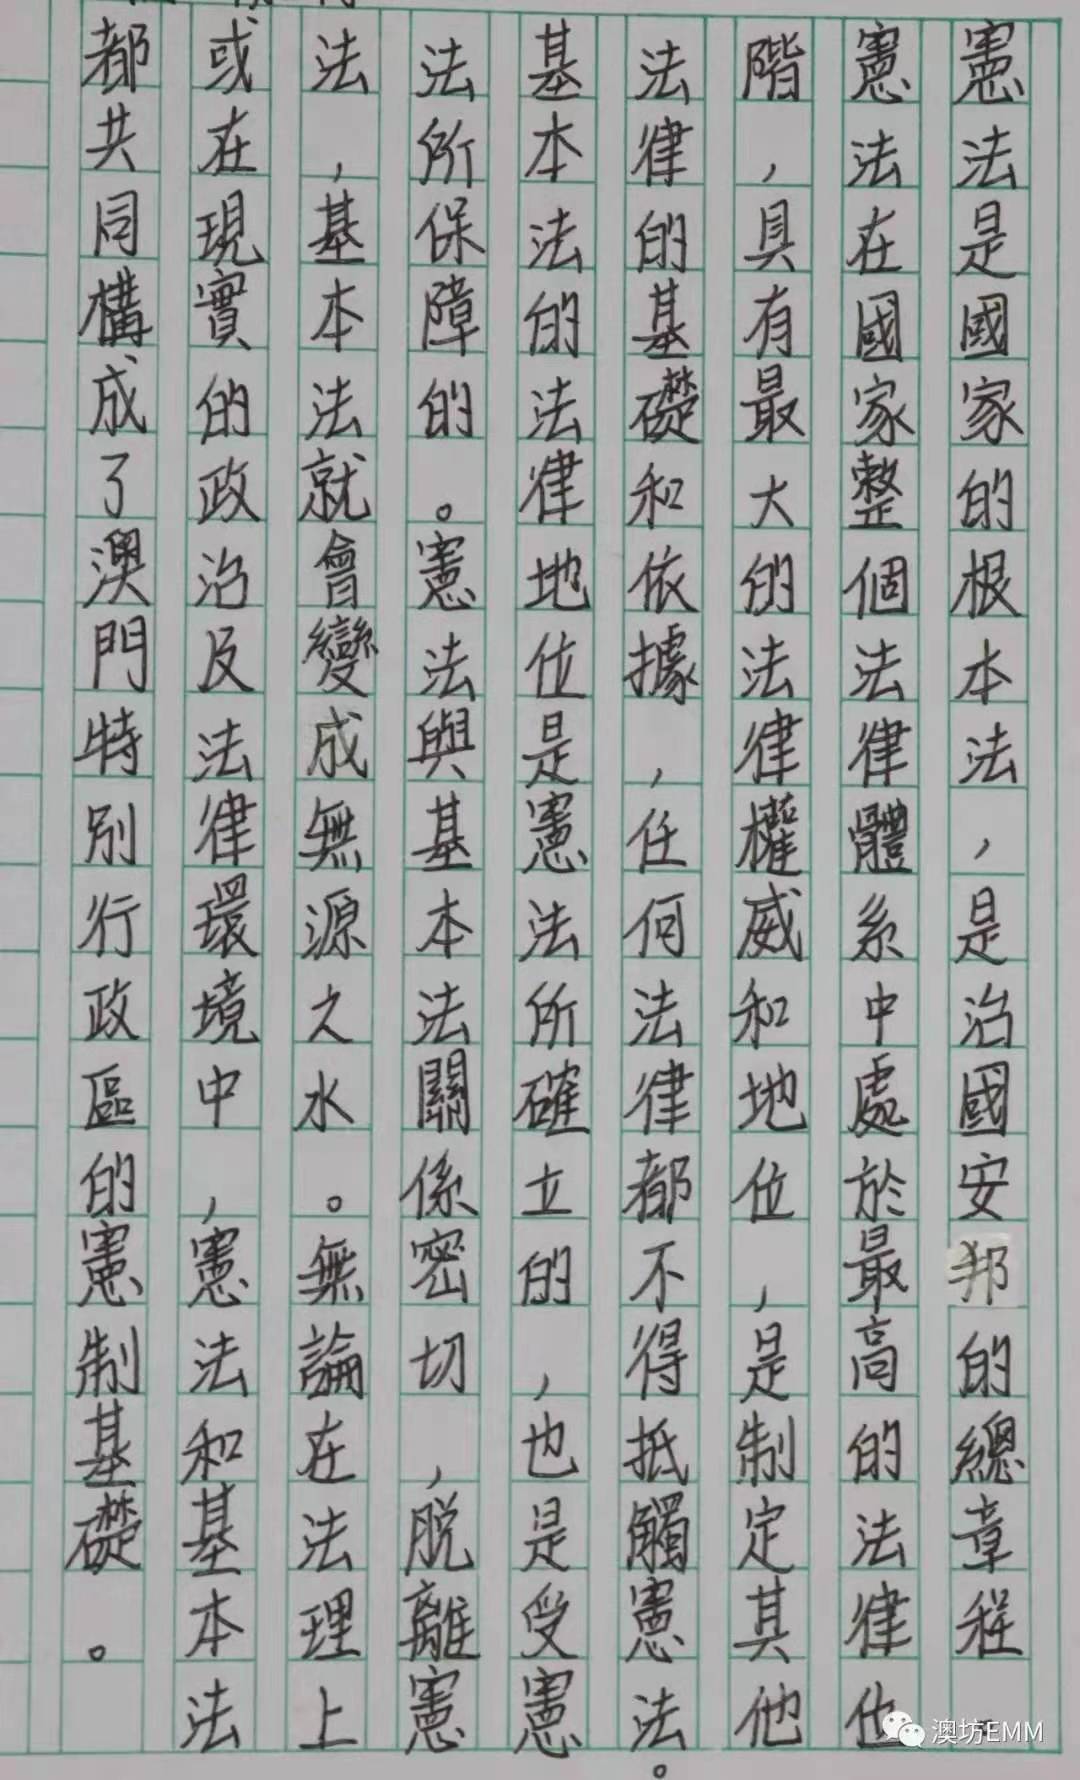 憲法是國家的根本法，是治國安邦的總章程。
憲法在國家整個法律體系中處於最高的法律位
階，具有最大的法律權威和地位，是制定其他
法律的基礎和依據，任何法律都不得抵觸憲法。
基本法的法律地位是憲法所確立的，也是受憲
法所保障的。憲法與基本法關係密切，脫離憲
法，基本法就會變成無源之水。無論在法理上
或在現實的政治及法律環境中，憲法和基本法
都共同構成了澳門特別行政區的憲制基礎。
澳坊EMM